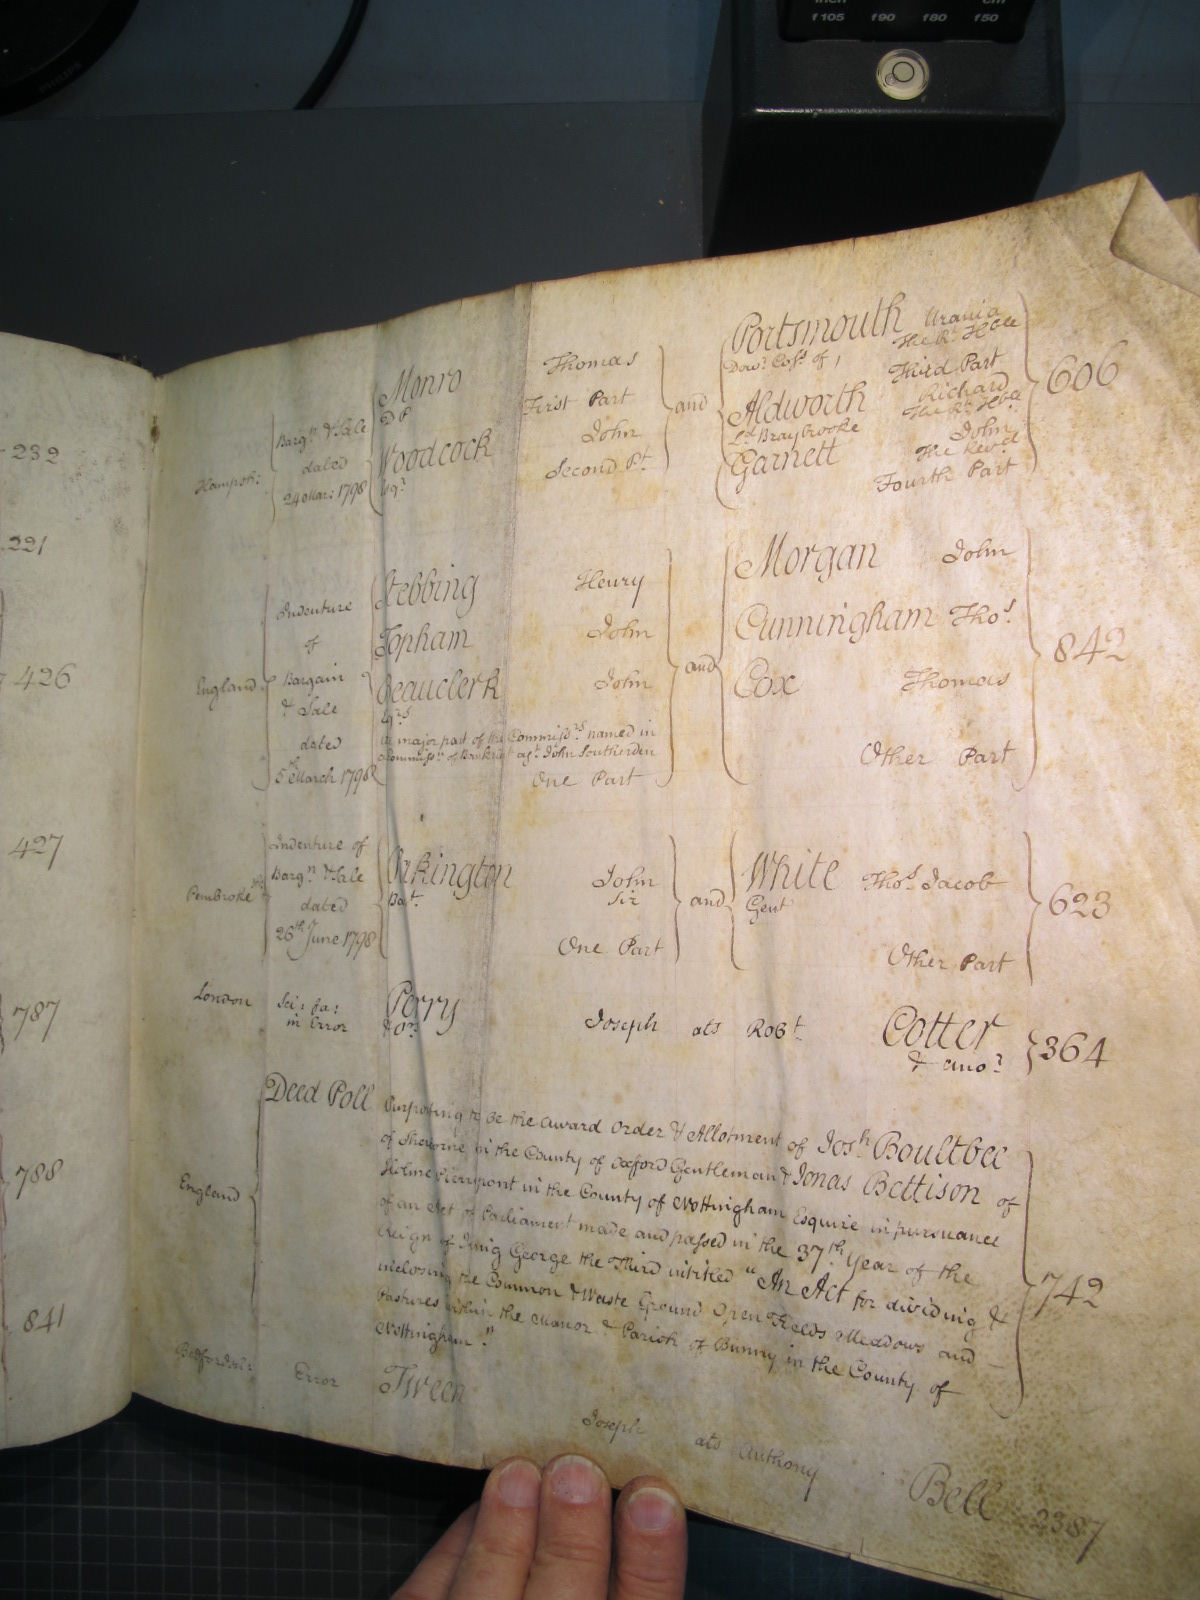 inch cm
f105 f90 f80 f50
PHILIPS
232
221
426
427
787
788
841
Hampsh:
Bargn & Sale
dated
24 Mar: 1798
Monro Thomas
DD First Part
Woodcock John
Esqr Second Pt
and
Portsmouth Urania
Dowr Cosss of, The Rt Hble
Third Part
Aldworth Richard
Ld Braybrooke The Rt Hble
Garnett John
The Revd
Fourth Part
606
England
Indenture
of
Bargain
& Sale
dated
5th March 1798
Stebbing Henry
Topham John
Beauclerk John
Esqrs
a major part of the Commissrs named in
Commissn of Bankrupt agt John Southerden
One Part
and
Morgan John
Cunningham Thos
Cox Thomas
Other Part
842
Pembroke
Indenture of
Bargn & Sale
dated
26th June 1798
Orkington John
Bat Sir
One Part
and
White Thos Jacob
Gent
Other Part
623
London Sci: fa: Perry Joseph ats Robt Cotter 364
in Error & or & anor
England
Deed Poll Purporting to be the award Order & Allotment of Josh Boultbee
of Sherborne in the County of Oxford Gentleman & Jonas Bettison of
Holme Pierrpont in the County of Nottingham Esquire in pursuance
of an Act of Parliament made and passed in the 37th Year of the
Reign of King George the Third intitled "An Act for dividing &
inclosing the Common & Waste Ground Open Fields Meadows and
Pastures within the Manor & Parish of Bunny in the County of
Nottingham."
742
Bedfordshr Error Tween Joseph ats Anthony Bell 2387